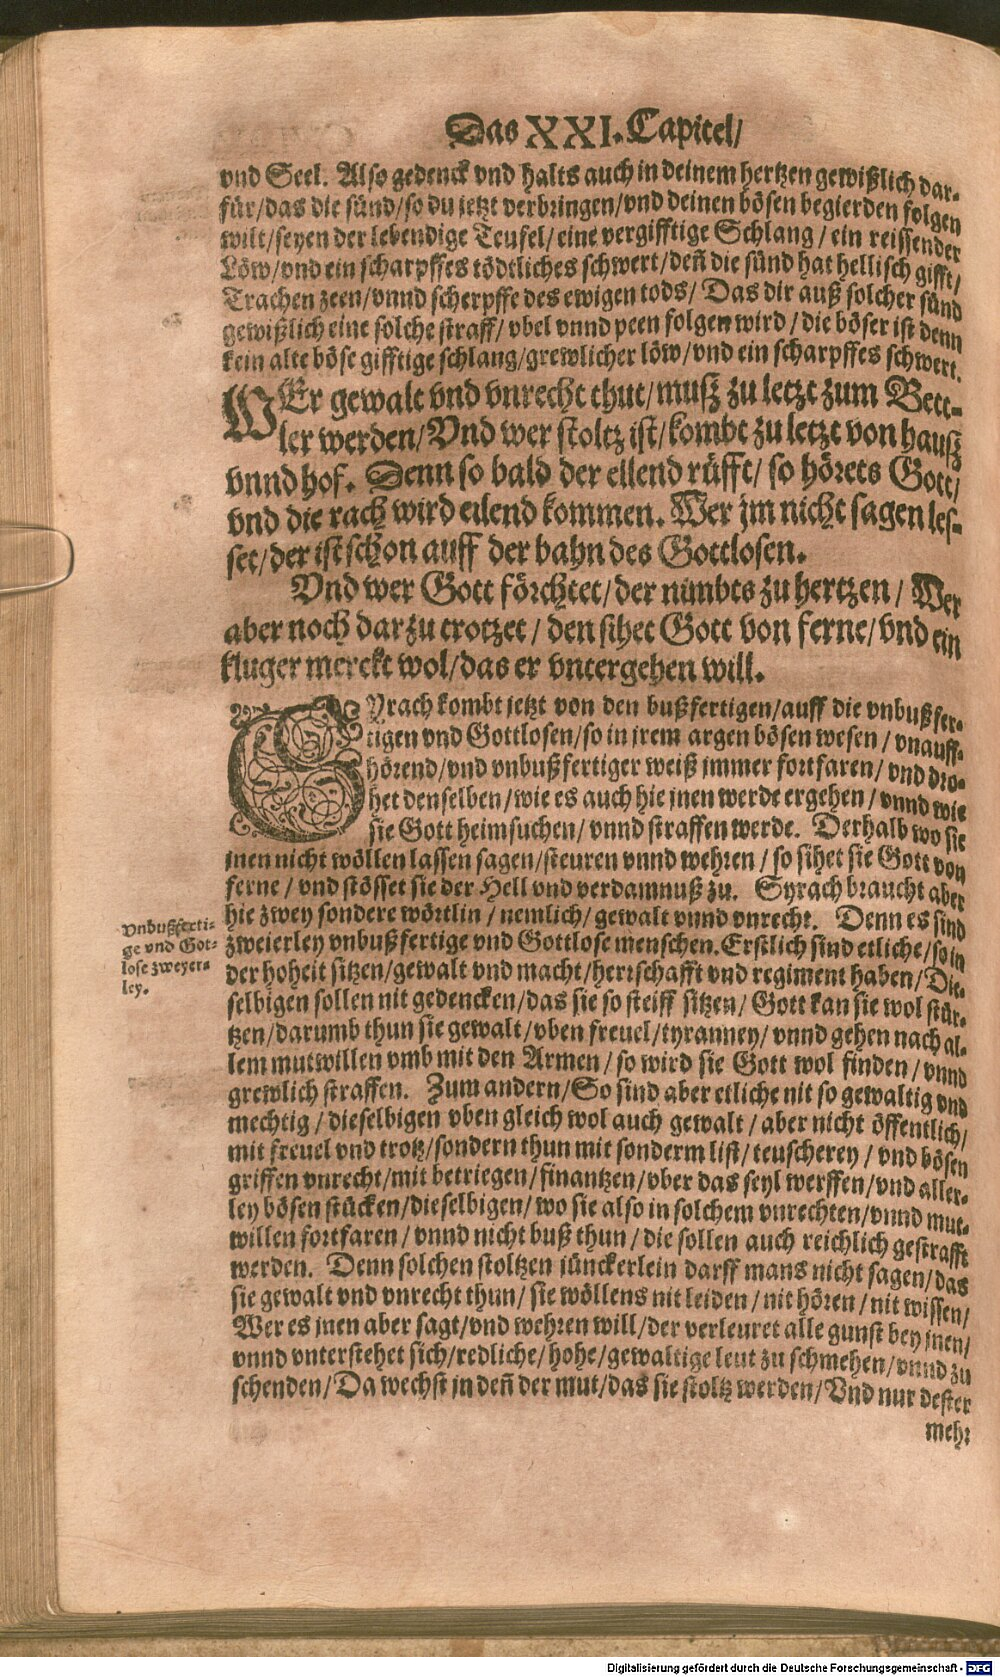 Das XXI. Capitel/
vnd Seel. Also gedenck vnd halts auch in deinem hertzen gewißlich dar-
für/das die sünd/so du jetzt verbringen/vnd deinen bösen begierden folgen
wilt/seyen der lebendige Teufel/eine vergifftige Schlang/ein reissender
Löw/vnd ein scharpffes tödtliches schwert/deñ die sünd hat hellisch gifft/
Trachen zeen/vnnd scherpffe des ewigen tods/Das dir auß solcher sünd
gewißlich eine solche straff/vbel vnnd peen folgen wird/die böser ist denn
kein alte böse gifftige schlang/grewlicher löw/vnd ein scharpffes schwert.
WEr gewalt vnd vnrecht thut/muß zu letzt zum Bett-
ler werden/Vnd wer stoltz ist/kombt zu letzt von hauß
vnnd hof. Denn so bald der ellend rüfft/so hörets Gott/
vnd die rach wird eilend kommen. Wer jm nicht sagen les-
set/der ist schon auff der bahn des Gottlosen.
Vnd wer Gott förchtet/der nimbts zu hertzen/Wer
aber noch darzu trotzet/den sihet Gott von ferne/vnd ein
kluger merckt wol/das er vntergehen will.
SYrach kombt jetzt von den bußfertigen/auff die vnbußfer-
tigen vnd Gottlosen/so in jrem argen bösen wesen/vnauff-
hörend/vnd vnbußfertiger weiß jmmer fortfaren/vnd dro-
het denselben/wie es auch hie jnen werde ergehen/vnnd wie
sie Gott heimsuchen/vnnd straffen werde. Derhalb wo sie
jnen nicht wöllen lassen sagen/steuren vnnd wehren/so sihet sie Gott von
ferne/vnd stösset sie der Hell vnd verdamnuß zu. Syrach braucht aber
hie zwey sondere wörtlin/nemlich/gewalt vnnd vnrecht. Denn es sind
zweierley vnbußfertige vnd Gottlose menschen. Erstlich sind etliche/so in
der hoheit sitzen/gewalt vnd macht/herrschafft vnd regiment haben/Die-
selbigen sollen nit gedencken/das sie so steiff sitzen/Gott kan sie wol stür-
tzen/darumb thun sie gewalt/vben freuel/tyranney/vnnd gehen nach al-
lem mutwillen vmb mit den Armen/so wird sie Gott wol finden/vnnd
grewlich straffen. Zum andern/So sind aber etliche nit so gewaltig vnd
mechtig/dieselbigen vben gleich wol auch gewalt/aber nicht öffentlich/
mit freuel vnd trotz/sondern thun mit sonderm list/teuscherey/vnd bösen
griffen vnrecht/mit betriegen/finantzen/vber das seyl werffen/vnd aller-
ley bösen stücken/dieselbigen/wo sie also in solchem vnrechten/vnnd mut-
willen fortfaren/vnnd nicht buß thun/die sollen auch reichlich gestrafft
werden. Denn solchen stoltzen jünckerlein darff mans nicht sagen/das
sie gewalt vnd vnrecht thun/sie wöllens nit leiden/nit hören/nit wissen/
Wer es jnen aber sagt/vnd wehren will/der verleuret alle gunst bey jnen/
vnnd vnterstehet sich/redliche/hohe/gewaltige leut zu schmehen/vnnd zu
schenden/Da wechst jn deñ der mut/das sie stoltz werden/Vnd nur dester
mehr
Vnbußferti-
ge vnd Got-
lose zweyer-
ley.
Digitalisierung gefördert durch die Deutsche Forschungsgemeinschaft - DFG